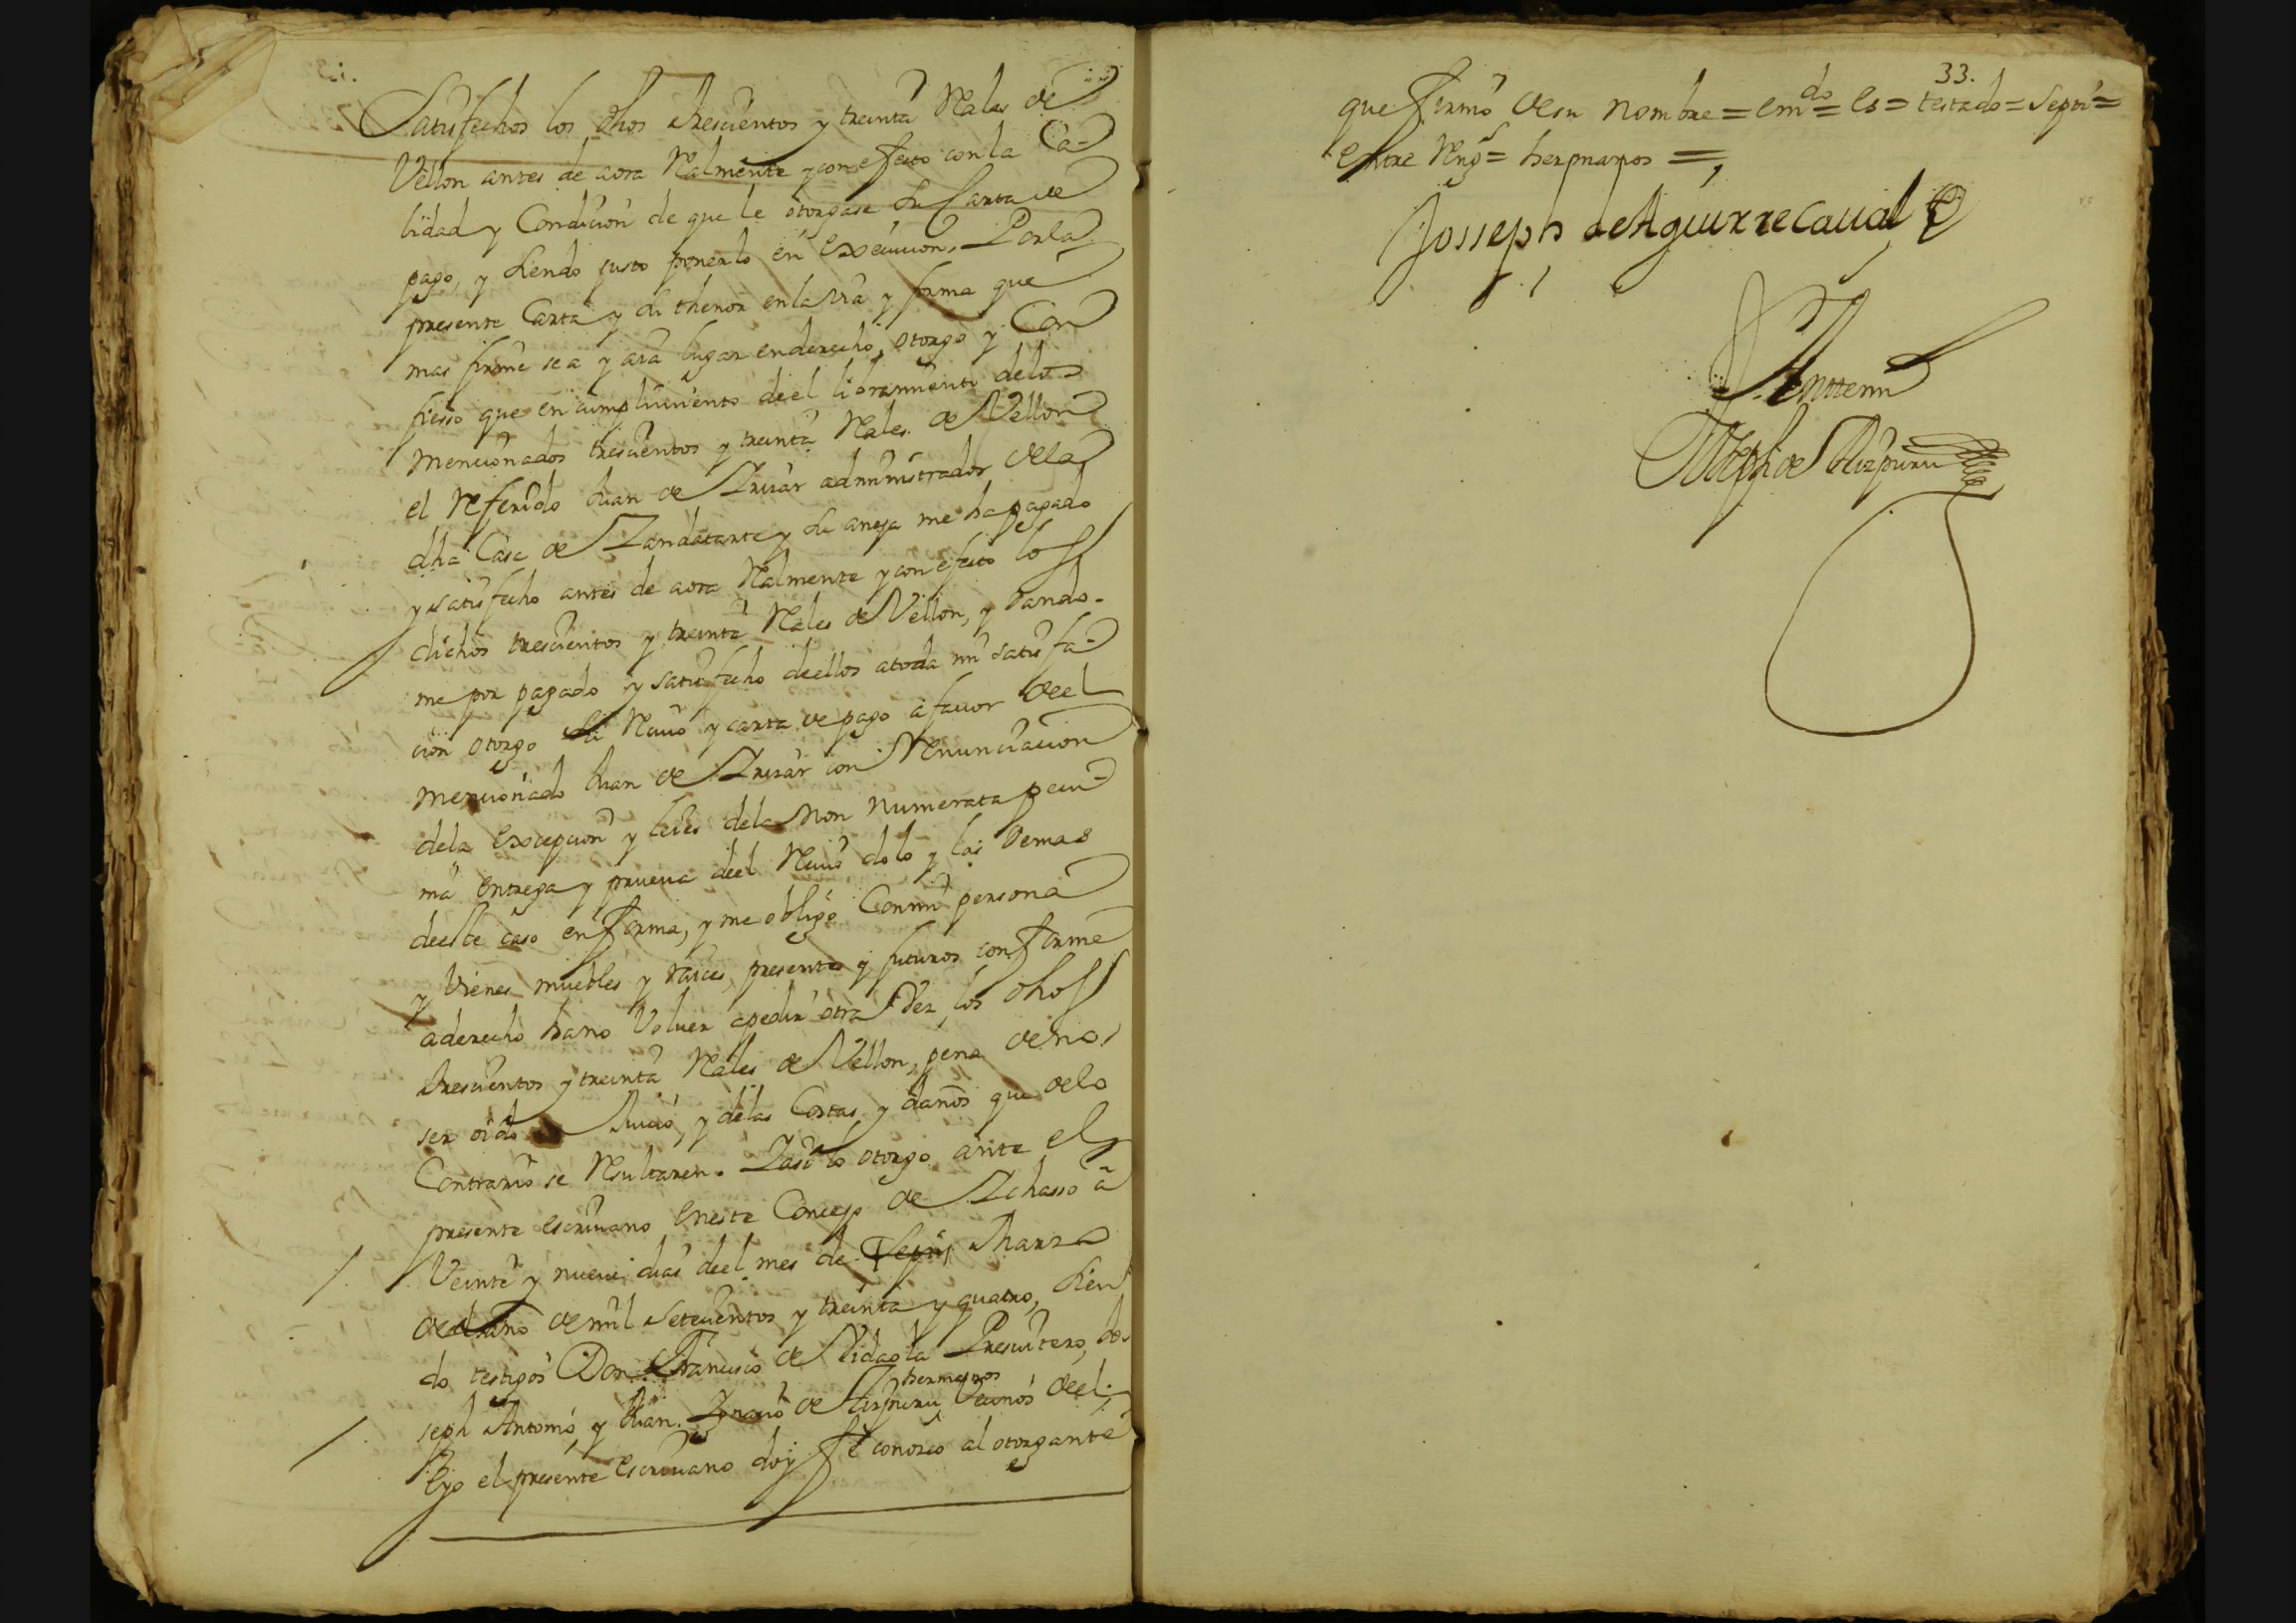 Satisfechos los dhos trescientos y treinta Rales de
Vellon antes de aora Ralmente y con efecto con la Ca-
lidad y Condicion de que le otorgase su Carta de
pago, y siendo justo ponerlo en execucion. Por la
presente Carta y su thenor en la via y forma que
mas firme sea y aia lugar en derecho, otorgo y Con
fiesso que en cumplimiento de el libramiento de los
mencionados trescientos y treinta Rales de Vellon
el Referido Juan de Iruiar administrador de la
dha Casa de Zandatante y su aneja me ha pagado
y satisfecho antes de aora Ralmente y con efecto los
dichos trescientos y treinta Rales de Vellon, y dando-
me por pagado y satisfecho de ellos a toda mi satisfa-
cion otorgo Reciuo y carta de pago a fauor de el
mencionado Juan de con Renunciacion
de la excepcion y leies de la non numerata pecu-
nia entrega y prueua de el Reciuo dolo y las demas
de este caso en forma, y me obligo Con mi persona
y vienes muebles y raices, presentes y futuros conforme
a derecho ha no voluer a pedir otra Vez los dhos
trescientos y treinta Rales de Vellon, pena de no
ser oido en Juicio, y de las Costas, y daños que de lo
Contrario se Resultaren. I asi lo otorgo ante el
presente escriuano en este Concejo de Ichasso a
Veinte y nueue dias de el mes de Septi Marzo
de el año de mil setecientos y treinta y quatro, sien
do testigos Don Francisco de Vidaola Presuitero, Jo-
hermanos
seph Antonio y Juan Ignacio de Aizpuru Vecinos de el;
E yo el presente escriuano doy fe conozco al otorgante
33.
que firmo de su nombre = em.do = es = testado = Septi =
entre Rengs = hermanos =,
Josseph de Aguirre Caual
Ante mi
Joseph de Aizpuru